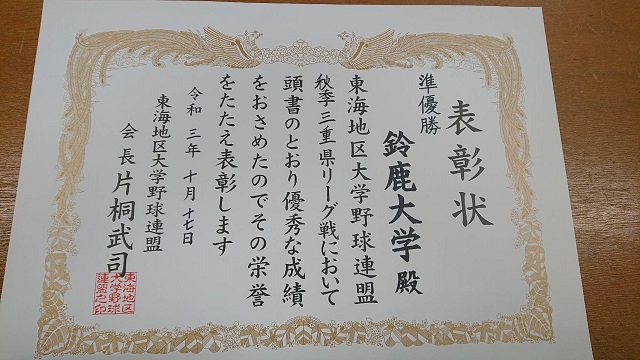 表彰状
準優勝
鈴鹿大学殿
東海地区大学野球連盟
秋季三重県リーグ戦において
頭書のとおり優秀な成績
をおさめたのでその栄誉
をたたえ表彰します
令和三年十月十七日
東海地区大学野球連盟
会長片桐武司
東海地区
大学野球
連盟之印